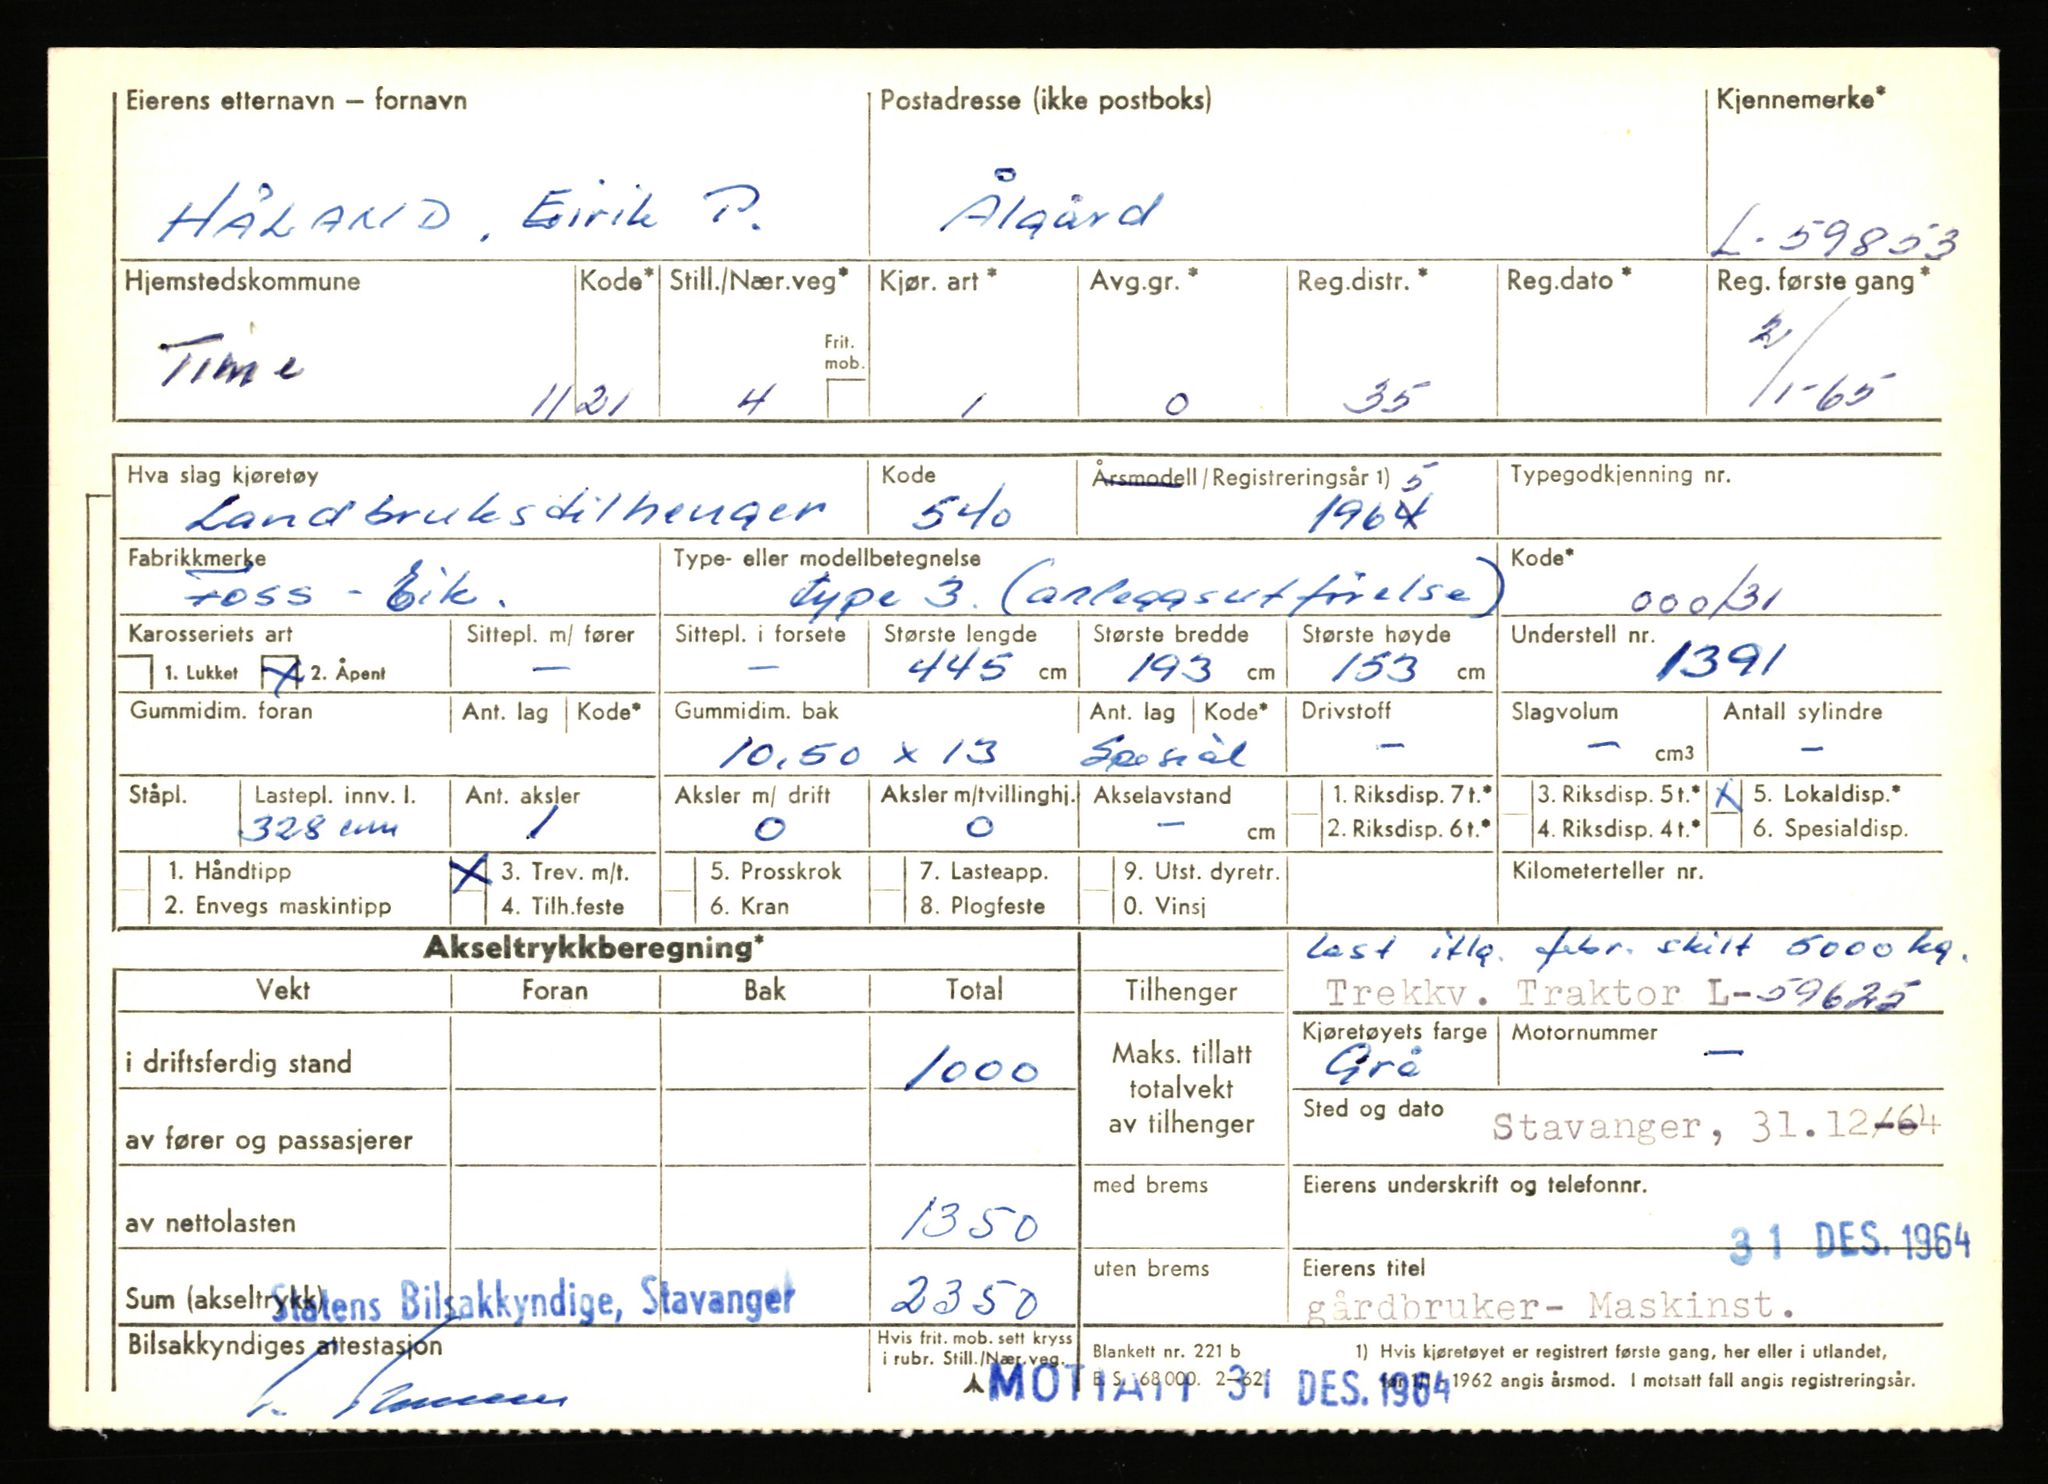 Eierens etternavn – fornavn Postadresse (ikke postboks) Kjennemerke*
HÅLAND, Eirik P. Ålgård L-59853
Hjemstedskommune Kode* Still./Nær.veg* Kjør. art* Avg.gr.* Reg.distr.* Reg.dato* Reg. første gang*
Frit. mob.
Time 1121 4 1 0 35 2/1-65
Hva slag kjøretøy Kode Årsmodell/Registreringsår 1) Typegodkjenning nr.
Landbrukstilhenger 540 1964 5
Fabrikkmerke Type- eller modellbetegnelse Kode*
Foss - Eik. type 3. (anleggsutførelse) 000/31
Karosseriets art Sittepl. m/ fører Sittepl. i forsete Største lengde Største bredde Største høyde Understell nr.
1. Lukket X 2. Åpent – – 445 cm 193 cm 153 cm 1391
Gummidim. foran Ant. lag Kode* Gummidim. bak Ant. lag Kode* Drivstoff Slagvolum Antall sylindre
10,50 x 13 Spesial – – cm3 –
Ståpl. Lastepl. innv. l. Ant. aksler Aksler m/ drift Aksler m/tvillinghj. Akselavstand 1. Riksdisp. 7 t.* 3. Riksdisp. 5 t.* X 5. Lokaldisp.*
328 cm 1 0 0 – cm 2. Riksdisp. 6 t.* 4. Riksdisp. 4 t.* 6. Spesialdisp.
1. Håndtipp X 3. Trev. m/t. 5. Prosskrok 7. Lasteapp. 9. Utst. dyretr. Kilometerteller nr.
2. Envegs maskintipp 4. Tilh.feste 6. Kran 8. Plogfeste 0. Vinsj
Akseltrykkberegning* Last iflg. fabr. skilt 5000 kg.
Vekt Foran Bak Total Tilhenger Trekkv. Traktor L-59625
Kjøretøyets farge Motornummer
i driftsferdig stand 1000 Maks. tillatt totalvekt av tilhenger Grå –
Sted og dato Stavanger, 31.12-64
av fører og passasjerer
med brems Eierens underskrift og telefonnr.
av nettolasten 1350
31 DES. 1964
uten brems Eierens titel
Sum (akseltrykk) Statens Bilsakkyndige, Stavanger 2350 gårdbruker- Maskinst.
Bilsakkyndiges attestasjon Hvis frit. mob. sett kryss i rubr. Still./Nær.veg. Blankett nr. 221 b 1) Hvis kjøretøyet er registrert første gang, her eller i utlandet,
E. S. 68 000. 2–62 før 1/1 1962 angis årsmod. I motsatt fall angis registreringsår.
MOTTATT 31 DES. 1964